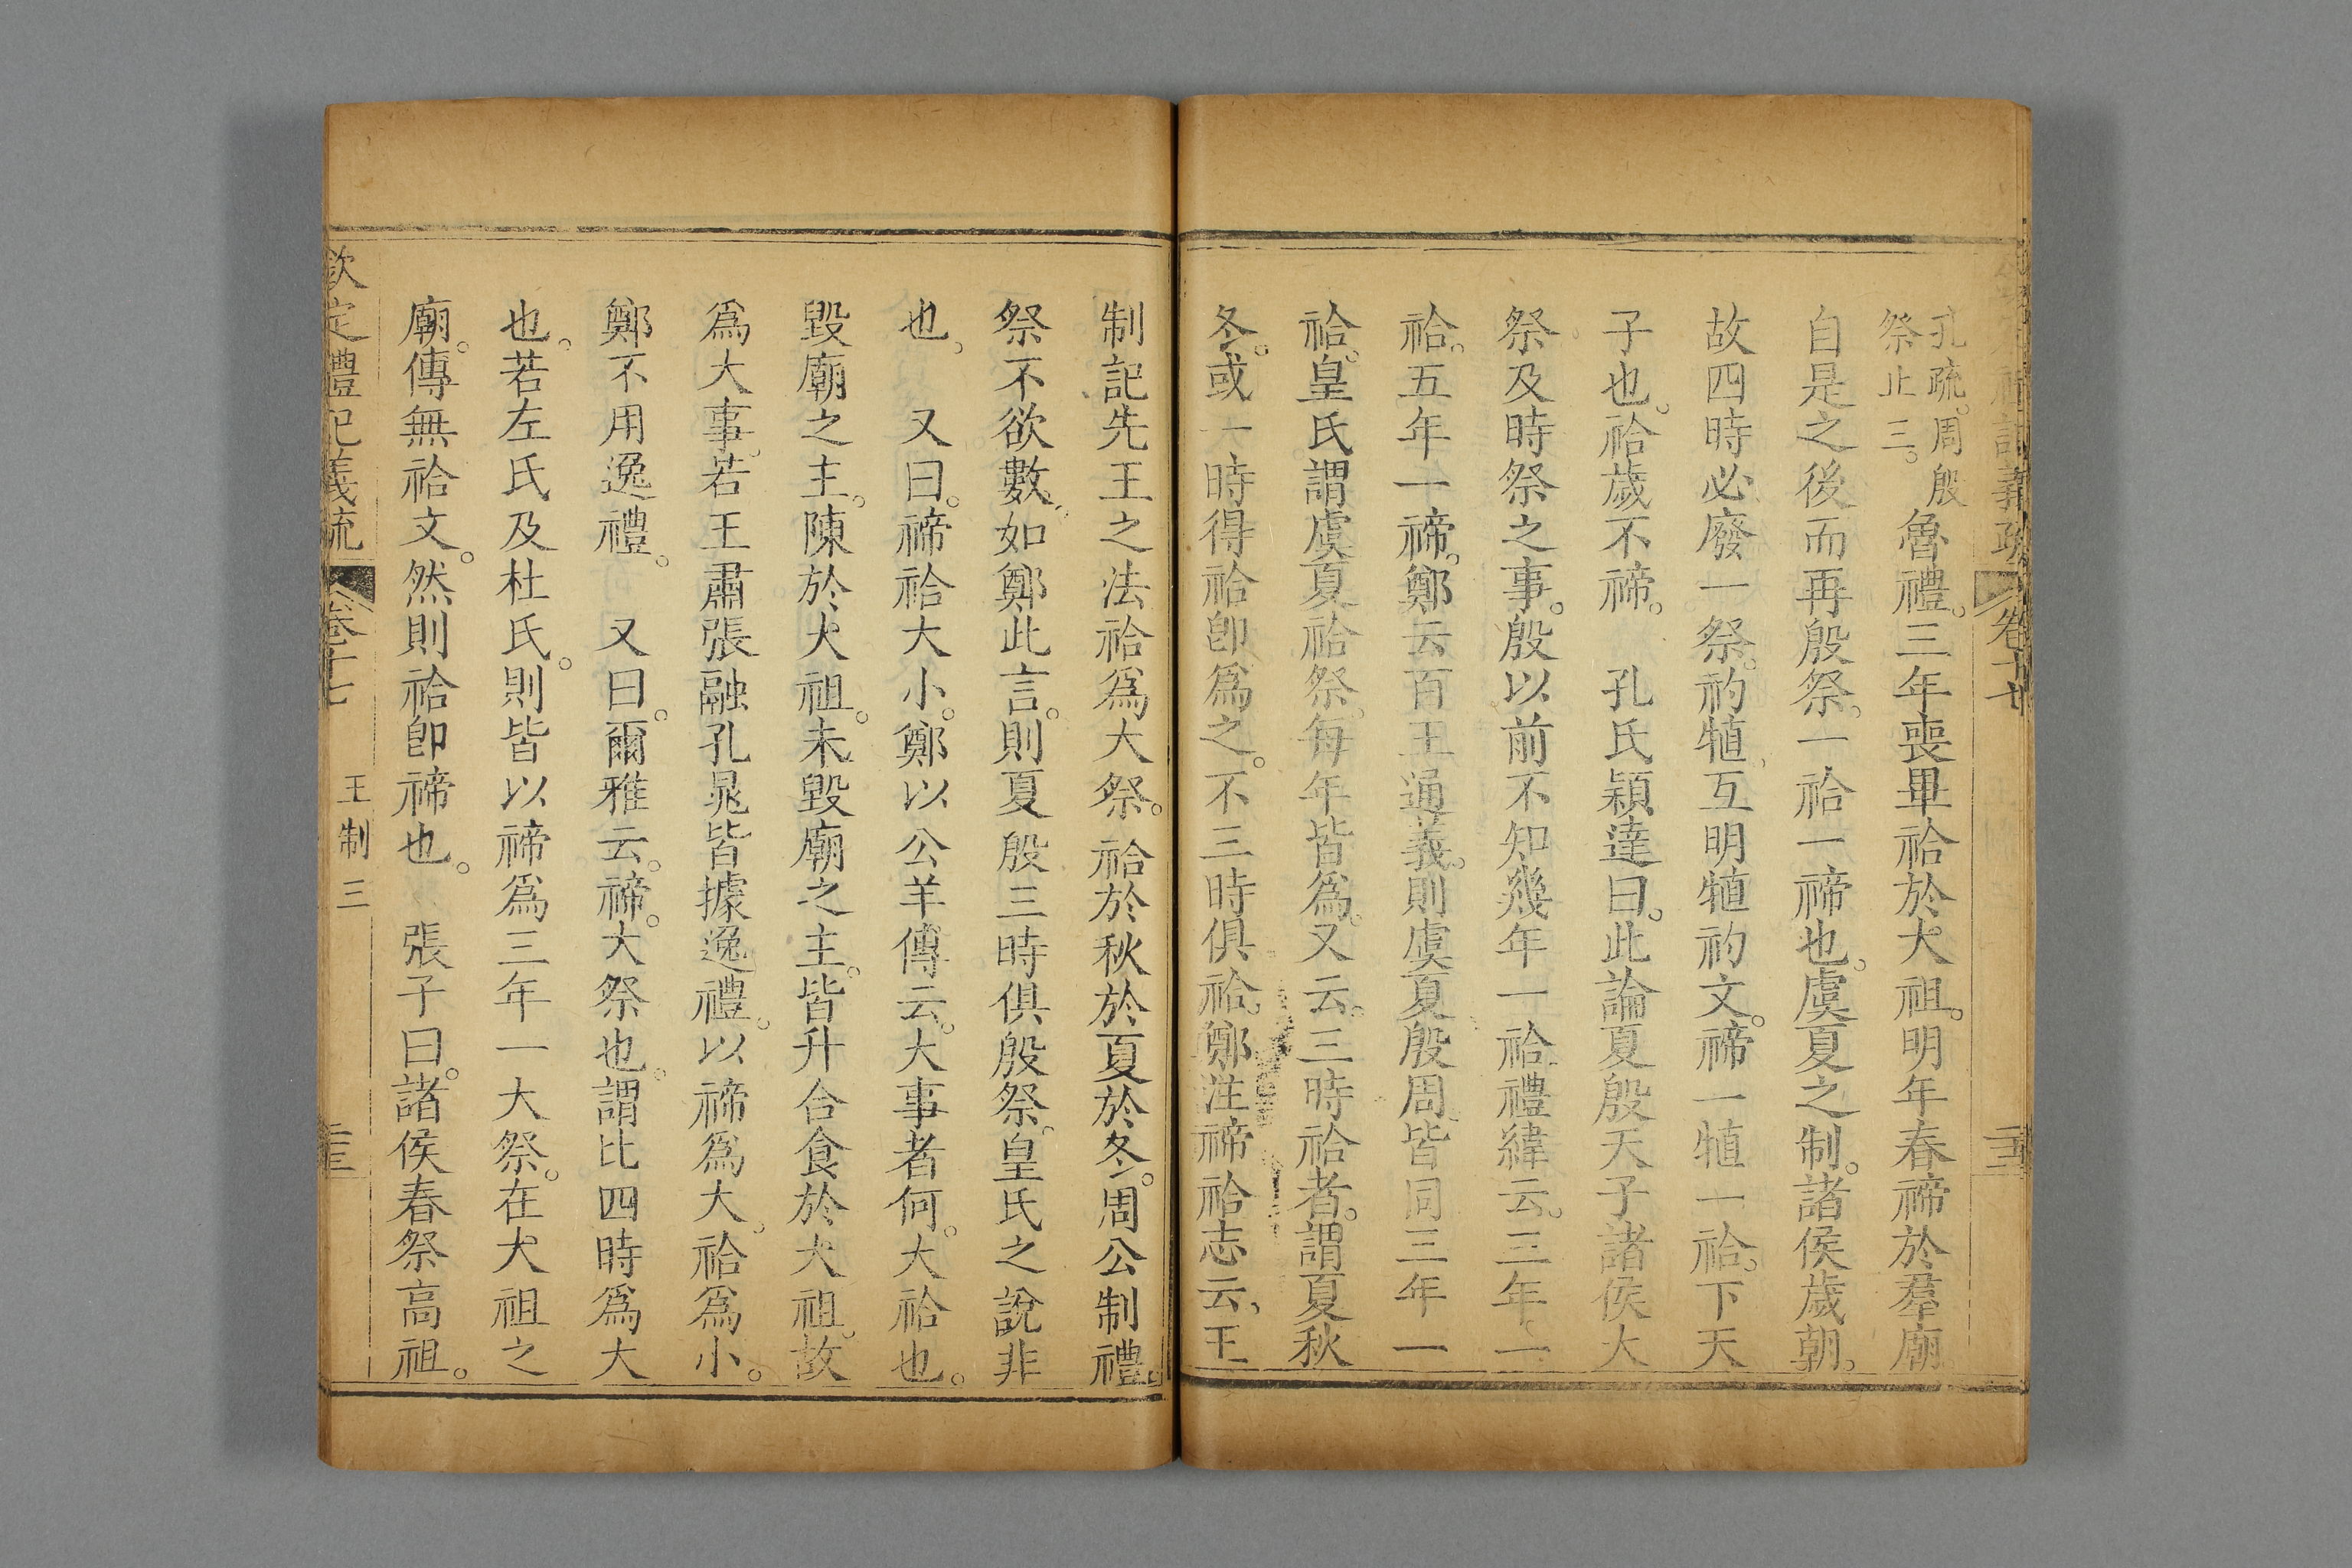 欽定禮記義疏 卷十七
孔疏。周殷
祭止三。
魯禮。三年喪畢祫於大祖。明年春禘於羣廟
自是之後而再殷祭。一祫一禘也。虞夏之制。諸侯歲朝。
故四時必廢一祭。礿犆、互明犆礿文。禘一犆一祫。下天
子也。祫歲不禘。 孔氏穎達曰。此論夏殷天子諸侯大
祭及時祭之事。殷以前不知幾年一祫禮緯云。三年一
祫。五年一禘。鄭云百王通義。則虞夏殷周皆同三年一
祫。皇氏謂虞夏祫祭。每年皆為。又云。三時祫者。謂夏秋
冬。或一時得祫卽爲之。不三時俱祫。鄭注禘祫志云、王
制記先王之法祫爲大祭。祫於秋於夏於冬。周公制禮。
祭不欲數、如鄭此言。則夏殷三時俱殷祭。皇氏之說非
也、 又曰。禘祫大小。鄭以公羊傳云。大事者何。大祫也。
毀廟之主。陳於大祖。未毀廟之主。皆升合食於大祖。故
爲大事。若王肅張融孔晁皆據逸禮。以禘爲大、祫爲小。
鄭不用逸禮。 又曰。爾雅云。禘。大祭也。謂比四時爲大
也。若左氏及杜氏。則皆以禘爲三年一大祭。在大祖之
廟。傳無祫文。然則祫卽禘也。 張子曰。諸侯春祭高祖。
欽定禮記義疏 卷十七 王制三